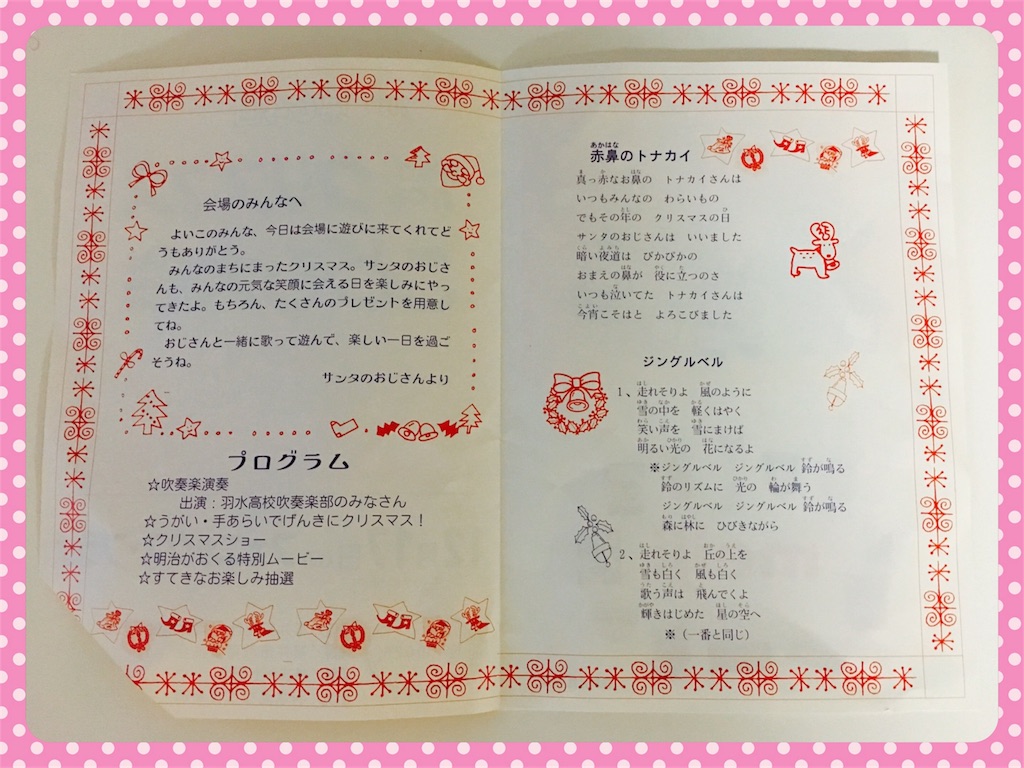 会場のみんなへ
よいこのみんな、今日は会場に遊びに来てくれてど
うもありがとう。
みんなのまちにまったクリスマス。サンタのおじさ
んも、みんなの元気な笑顔に会える日を楽しみにやっ
てきたよ。もちろん、たくさんのプレゼントを用意し
てね。
おじさんと一緒に歌って遊んで、楽しい一日を過ご
そうね。
サンタのおじさんより
プログラム
☆吹奏楽演奏
出演:羽水高校吹奏楽部のみなさん
☆うがい・手あらいでげんきにクリスマス!
☆クリスマスショー
☆明治がおくる特別ムービー
☆すてきなお楽しみ抽選
あかはな
赤鼻のトナカイ
ま か はな
真っ赤なお鼻の トナカイさんは
いつもみんなの わらいもの
とし ひ
でもその年の クリスマスの日
サンタのおじさんは いいました
くら よみち
暗い夜道は ぴかぴかの
はな やく た
おまえの鼻が 役に立つのさ
な
いつも泣いてた トナカイさんは
こよい
今宵こそはと よろこびました
ジングルベル
はし かぜ
1、走れそりよ 風のように
ゆき なか かる
雪の中を 軽くはやく
わら こえ ゆき
笑い声を 雪にまけば
あか ひかり はな
明るい光の 花になるよ
すず な
※ジングルベル ジングルベル 鈴が鳴る
すず ひかり わ ま
鈴のリズムに 光の 輪が舞う
すず な
ジングルベル ジングルベル 鈴が鳴る
もり はやし
森に林に ひびきながら
はし おか うえ
2、走れそりよ 丘の上を
ゆき しろ かぜ しろ
雪も白く 風も白く
うた こえ と
歌う声は 飛んでくよ
かがや ほし そら
輝きはじめた 星の空へ
※(一番と同じ)